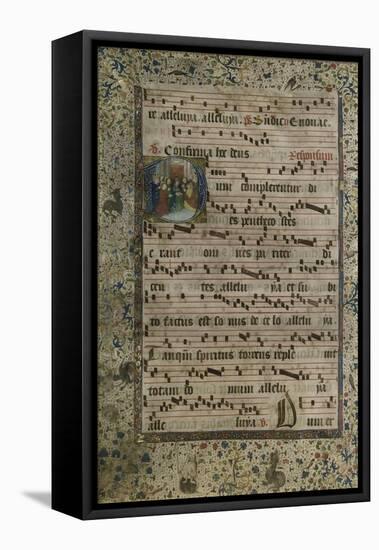 re alleluya. alleluya.
Confirma hoc deus Responsum
um complerentur di
es penthecostes
erant om nes pariter di
cen tes allelu ya et su bi
to factus est so nus de ce lo allelu ya.
Tanqua spiritus torrens reple uit
totam do mum allelu ya
alle luya. Dum er